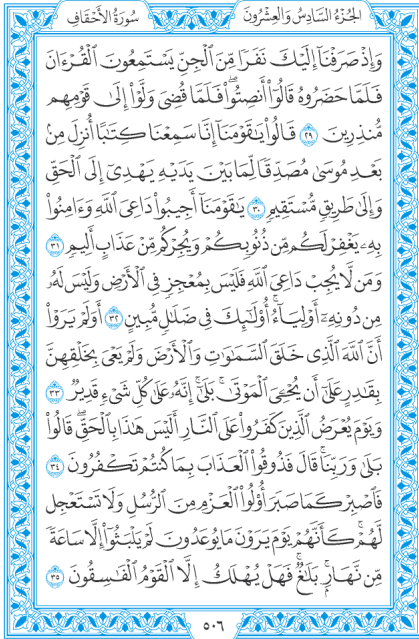 الجُزءُ السَّادِسُ وَالعِشْرُونَ سُورَةُ الأَحْقَافِ
وَإِذْ صَرَفْنَآ إِلَيْكَ نَفَرًا مِّنَ ٱلْجِنِّ يَسْتَمِعُونَ ٱلْقُرْءَانَ
فَلَمَّا حَضَرُوهُ قَالُوٓا۟ أَنصِتُوا۟ ۖ فَلَمَّا قُضِىَ وَلَّوْا۟ إِلَىٰ قَوْمِهِم
مُّنذِرِينَ ٢٩ قَالُوا۟ يَـٰقَوْمَنَآ إِنَّا سَمِعْنَا كِتَـٰبًا أُنزِلَ مِنۢ
بَعْدِ مُوسَىٰ مُصَدِّقًا لِّمَا بَيْنَ يَدَيْهِ يَهْدِىٓ إِلَى ٱلْحَقِّ
وَإِلَىٰ طَرِيقٍ مُّسْتَقِيمٍ ٣٠ يَـٰقَوْمَنَآ أَجِيبُوا۟ دَاعِىَ ٱللَّهِ وَءَامِنُوا۟
بِهِۦ يَغْفِرْ لَكُم مِّن ذُنُوبِكُمْ وَيُجِرْكُم مِّنْ عَذَابٍ أَلِيمٍ ٣١
وَمَن لَّا يُجِبْ دَاعِىَ ٱللَّهِ فَلَيْسَ بِمُعْجِزٍ فِى ٱلْأَرْضِ وَلَيْسَ لَهُۥ
مِن دُونِهِۦٓ أَوْلِيَآءُ ۚ أُو۟لَـٰٓئِكَ فِى ضَلَـٰلٍ مُّبِينٍ ٣٢ أَوَلَمْ يَرَوْا۟
أَنَّ ٱللَّهَ ٱلَّذِى خَلَقَ ٱلسَّمَـٰوَٰتِ وَٱلْأَرْضَ وَلَمْ يَعْىَ بِخَلْقِهِنَّ
بِقَـٰدِرٍ عَلَىٰٓ أَن يُحْـِۧىَ ٱلْمَوْتَىٰ ۚ بَلَىٰٓ إِنَّهُۥ عَلَىٰ كُلِّ شَىْءٍ قَدِيرٌ ٣٣
وَيَوْمَ يُعْرَضُ ٱلَّذِينَ كَفَرُوا۟ عَلَى ٱلنَّارِ أَلَيْسَ هَـٰذَا بِٱلْحَقِّ ۖ قَالُوا۟
بَلَىٰ وَرَبِّنَا ۚ قَالَ فَذُوقُوا۟ ٱلْعَذَابَ بِمَا كُنتُمْ تَكْفُرُونَ ٣٤
فَٱصْبِرْ كَمَا صَبَرَ أُو۟لُوا۟ ٱلْعَزْمِ مِنَ ٱلرُّسُلِ وَلَا تَسْتَعْجِل
لَّهُمْ ۚ كَأَنَّهُمْ يَوْمَ يَرَوْنَ مَا يُوعَدُونَ لَمْ يَلْبَثُوٓا۟ إِلَّا سَاعَةً
مِّن نَّهَارٍۭ ۚ بَلَـٰغٌ ۚ فَهَلْ يُهْلَكُ إِلَّا ٱلْقَوْمُ ٱلْفَـٰسِقُونَ ٣٥
٥٠٦